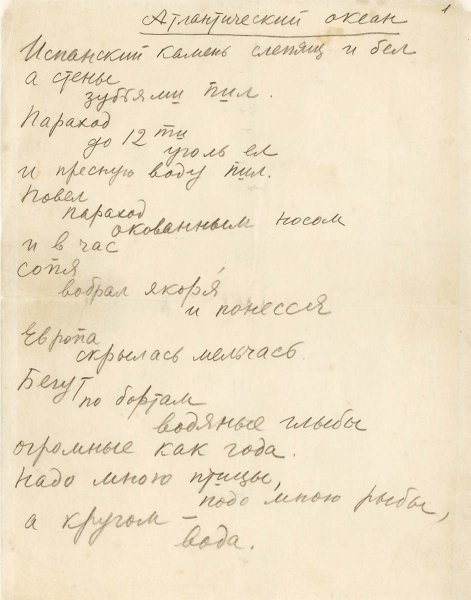 1
Атлантический океан
Испанский камень слепящ и бел
а стены
зубьями пил.
Параход
до 12ти
уголь ел
и пресную воду пил.
Повел
параход
окованным носом
и в час
сопя
вобрал якоря́
и понесся
Европа
скрылась мельчась.
Бегут
по бортам
водяные глыбы
огромные как года.
Надо мною птицы,
подо мною рыбы,
а кругом –
вода.